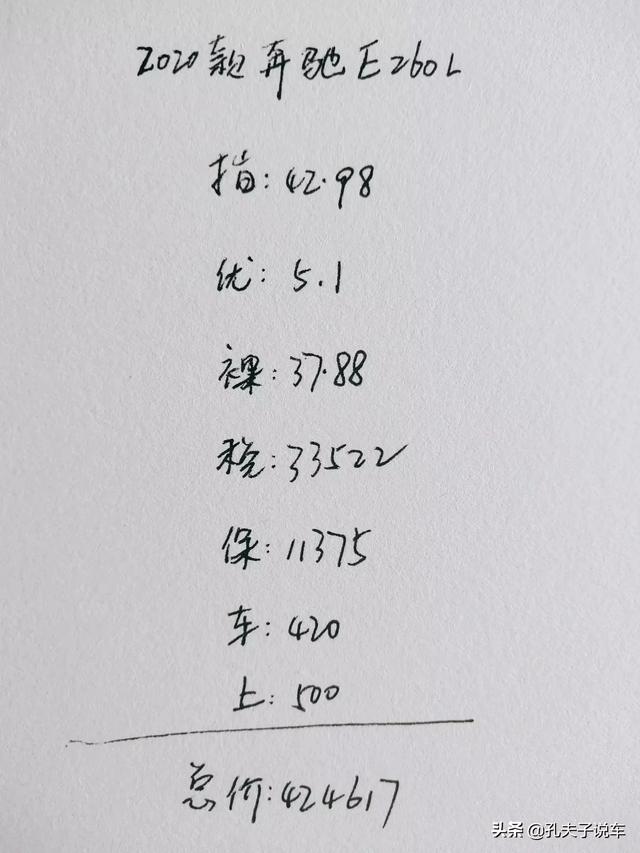 2020款奔驰E260L
指:42.98
优:5.1
裸:37.88
税:33522
保:11375
车:420
上:500
总价:424617
头条 @孔夫子说车